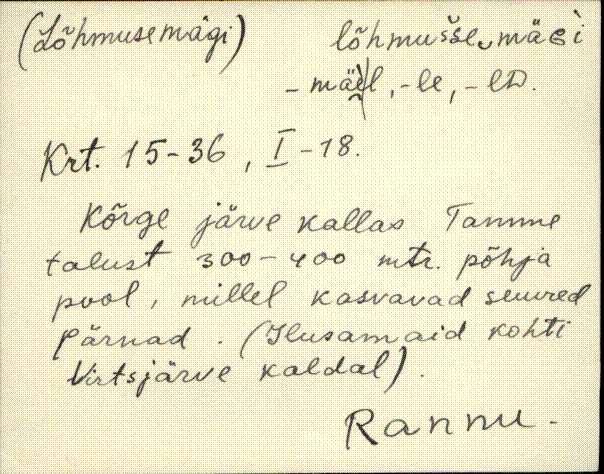 (Lõhmusemägi) lõhmušše‿mäGi
- mäel, -le, -lD.
Krt. 15-36, I-18.
Kõrge järve kallas Tamme
talust 300-400 mtr. põhja
pool, millel kasvavad suured
pärnad. (Ilusamaid kohti
Virtsjärve kaldal).
Rannu.